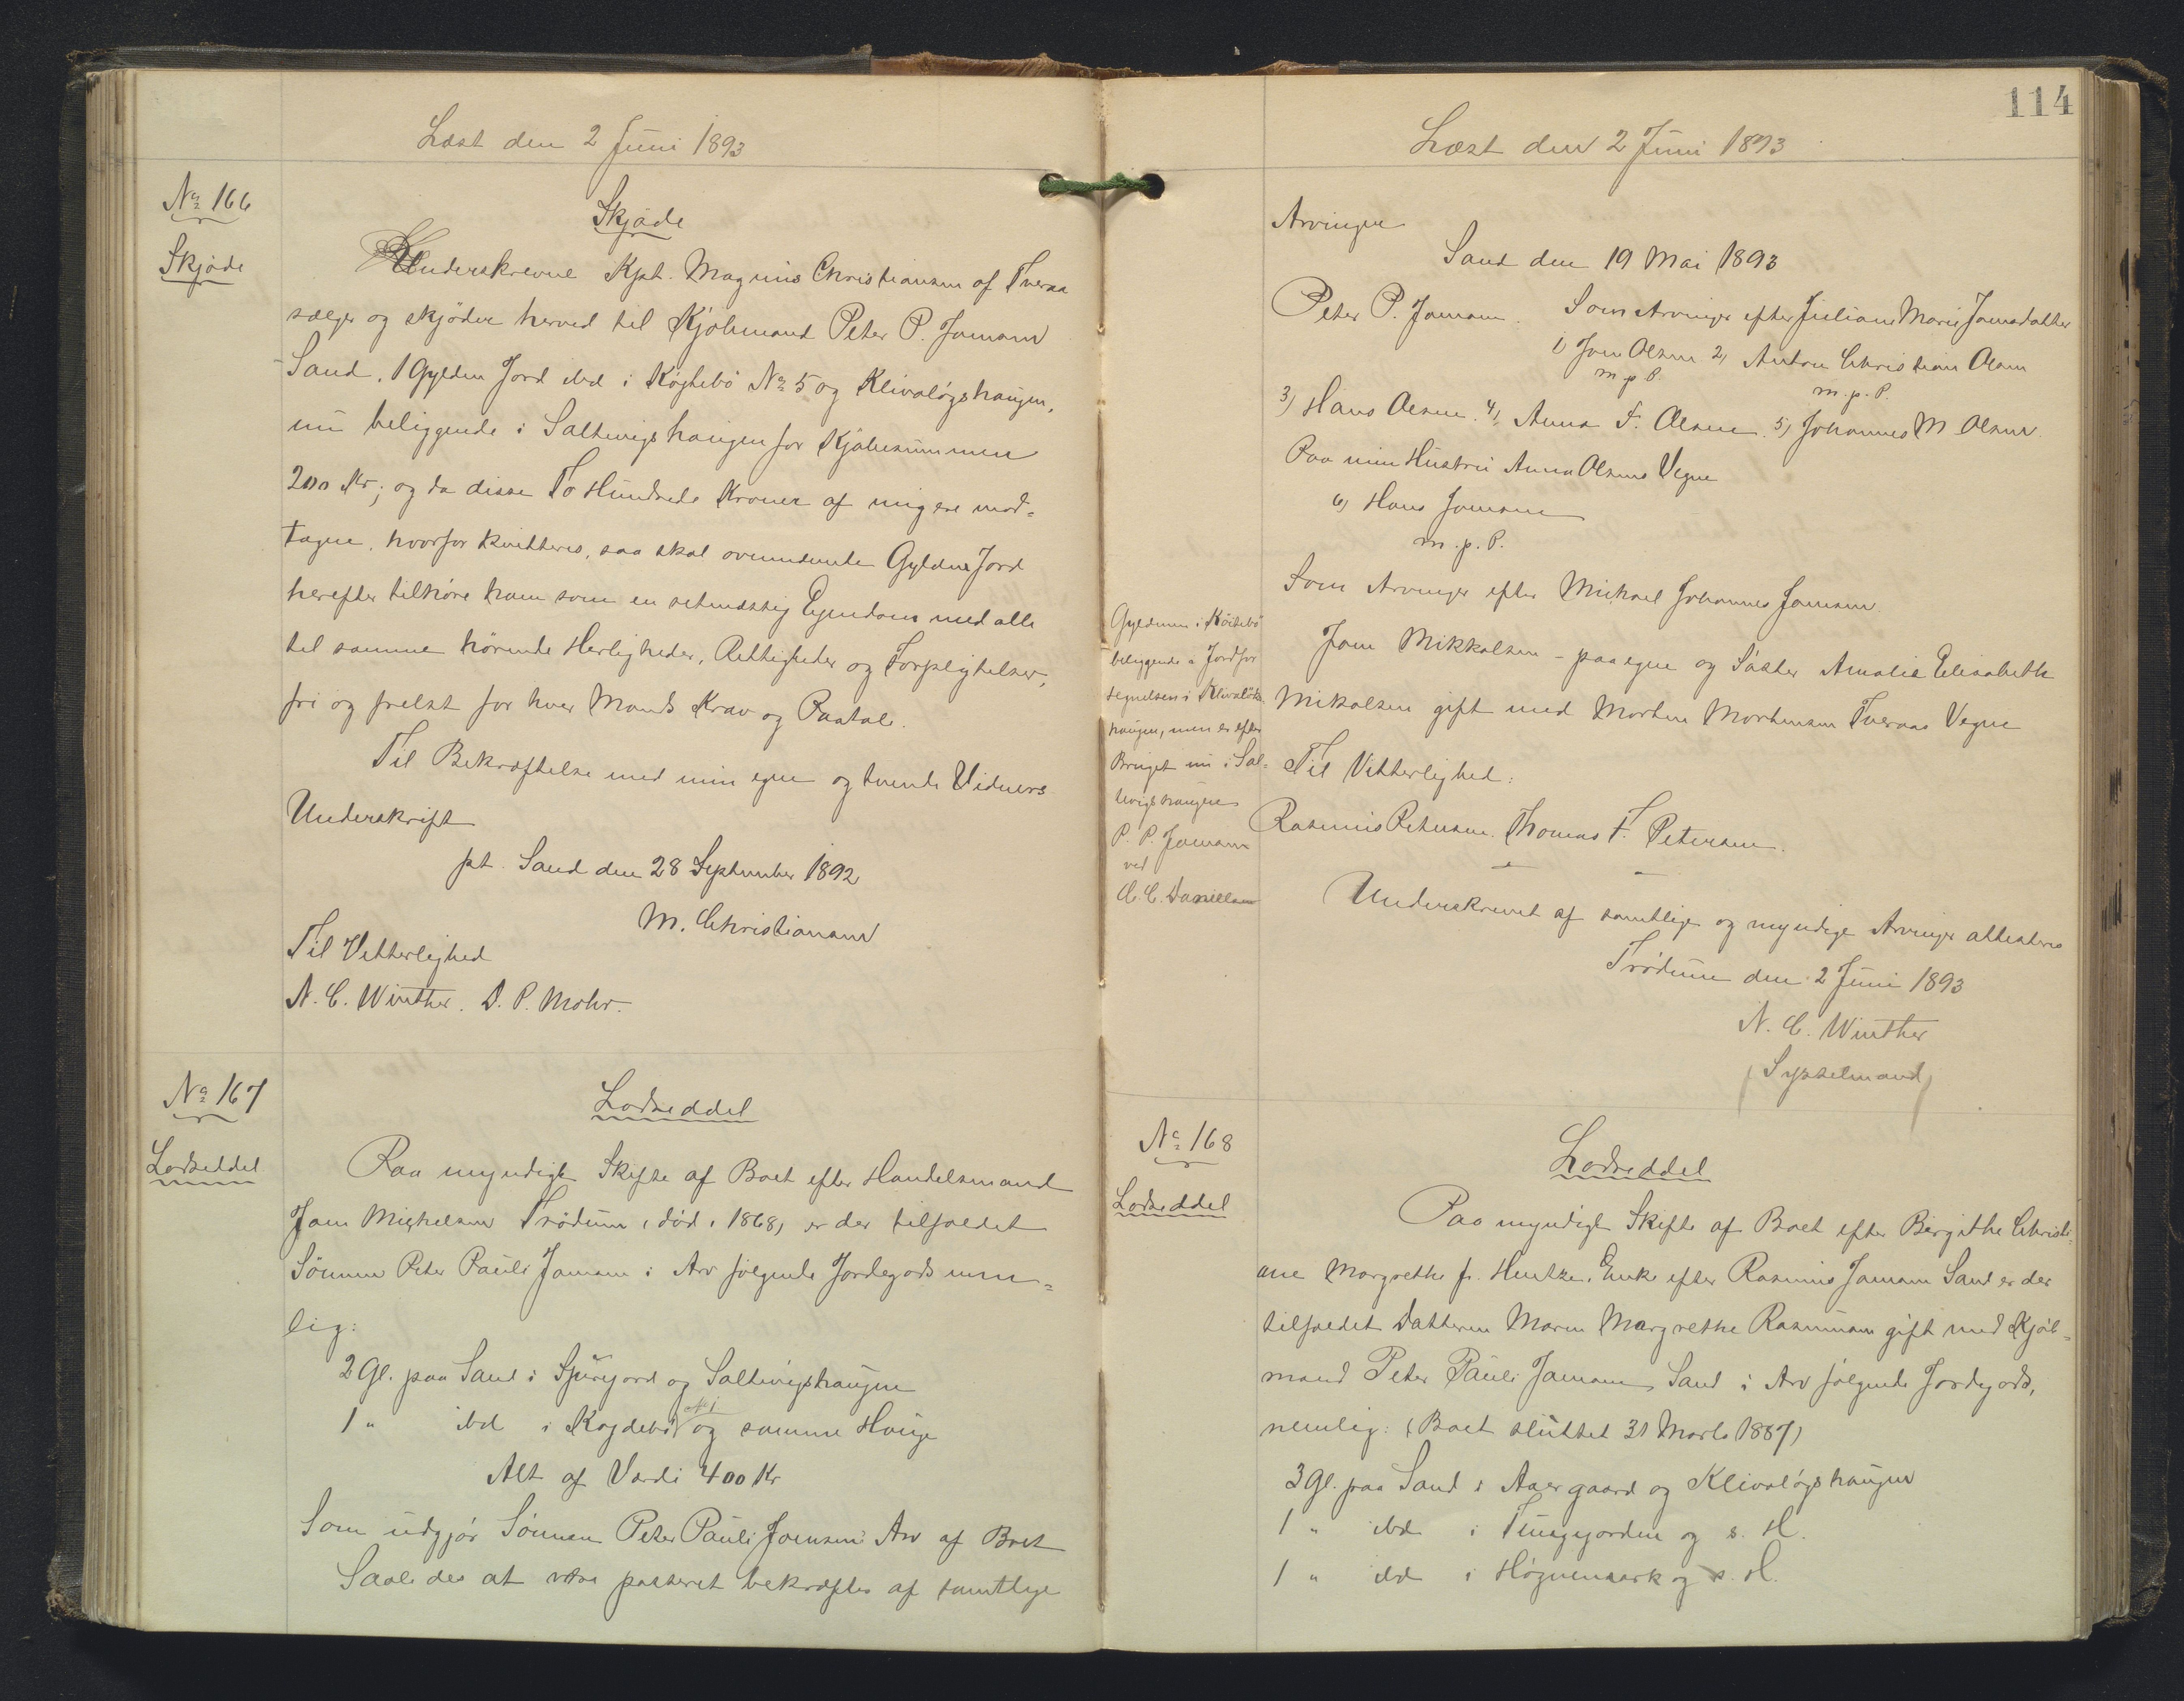 Læst den 2 Juni 1893
No 166
Skjøde
Skjøde
Underskrevne Kpt. Magnus Christiansen af Tveraa
sælger og skjøder herved til Kjøbmand Peter P. Joensen
Sand, 1 Gylden Jord ibd i Køgtebø No 5 og Klivaløgshaugen,
nu beliggende i Saltvigshaugen for Kjøbesummen
200 Kr; og da disse To Hundrede Kroner af mig ere mod=
tagne, hvorfor kvitteres, saa skal ovennævnte Gylden Jord
herefter tilhøre ham som en retmæssig Ejendom med alle
til samme hørende Herligheder, Rettigheder og Forpligtelser,
fri og frelst for hver Mands Krav og Paatale.
Til Bekræftelse med min egne og tvende Vidners
Underskrift
pt. Sand den 28 September 1892
M. Christiansen
Til Vitterlighed
N. C. Winther. D. P. Mohr.
No 167
Lodseddel
Lodseddel
Paa myndigt Skifte af Boet efter Handelsmand
Joen Michelsen Trødum (død i 1868) er der tilfaldet
Sønnen Peter Pauli Joensen i Arv følgende Jordegods nem=
lig:
2 Gl. paa Sand i og Saltvigshaugen
1 " ibd i Køgdebø No 1 og samme Hauge
Alt af Værdi 400 Kr
Som udgjør Sønnen Peter Pauli Joensens Arv af Boet
Saaledes at være passeret bekræftes af samtlige
114
Læst den 2 Juni 1893
Arvinger
Sand den 19 Mai 1893
Peter P. Joensen. Som Arvinger efter Juliane Marie Joensdatter
1) Joen Olsen 2) Andrea Christian Olsen
m. p. P. m. p. P.
3) Hans Olsen. 4) Anna F. Olsen. 5) Johannes M Olsen.
Paa min Hustru Anna Olsens Vegne
6) Hans Joensen
m. p. P.
Som Arvinger efter Michael Johannes Joensen.
Joen Mikkelsen - paa egne og Søster Amalia Elisabeth
Mikalsen gift med Morten Mortensen Tveraas Vegne
Til Vitterlighed:
Rasmus Petersen. Thomas F. Petersen.
Gyldenen i Køitebø
beliggende i Jordfor
tegnelsen i Klivaløgs
haugen, men er efter
Bruget nu i Sal=
tvigshaugen
P. P. Joensen
ved
C. C. Danielsen
Underskrevet af samtlige og myndige Arvinger attesteres
Trødum den 2 Juni 1893
N. C. Winther
(Sysselmand)
No 168
Lodseddel
Lodseddel
Paa myndigt Skifte af Boet efter Birgithe Christi=
ane Margrethe f. Hentze, Enke efter Rasmus Joensen Sand er der
tilfaldet Datteren Maren Margrethe Rasmussen gift med Kjøb=
mand Peter Pauli Joensen Sand i Arv følgende Jordegods,
nemlig: (Boet sluttet 31 Marts 1887)
3 Gl. paa Sand i Aaergaard og Klivaløgshaugen
1 " ibd i Tungegorden og s. H.
1 " ibd i Høgnemark og s. H.